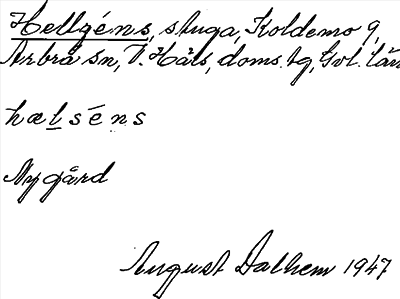 Hellgéns, stuga, Koldemo 9,
Arbrå sn, V. Häls, doms. tg, Gvl. län
hælséns
Nygård
August Dalhem 1947